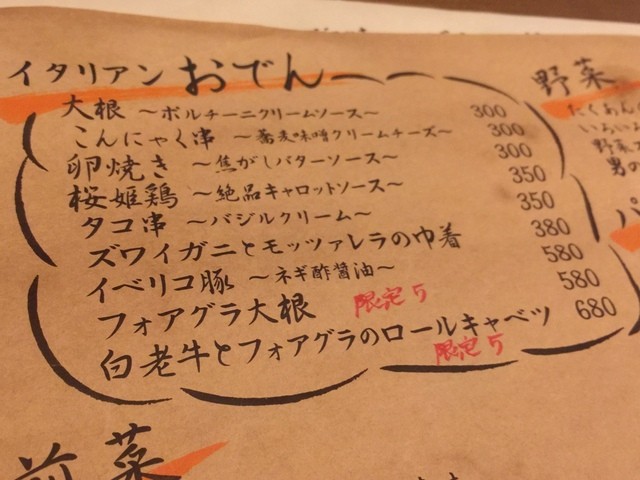 イタリアン おでん
大根 ~ポルチーニクリームソース~ 300
こんにゃく串 ~蕎麦味噌クリームチーズ~ 300
卵焼き ~焦がしバターソース~ 300
桜姫鶏 ~絶品キャロットソース~ 350
タコ串 ~バジルクリーム~ 350
ズワイガニとモッツァレラの巾着 380
イベリコ豚 ~ネギ酢醤油~ 580
フォアグラ大根 限定5 580
白老牛とフォアグラのロールキャベツ 680
限定5
野菜
たくあん
いろいろ
野菜
男の
パ
前菜